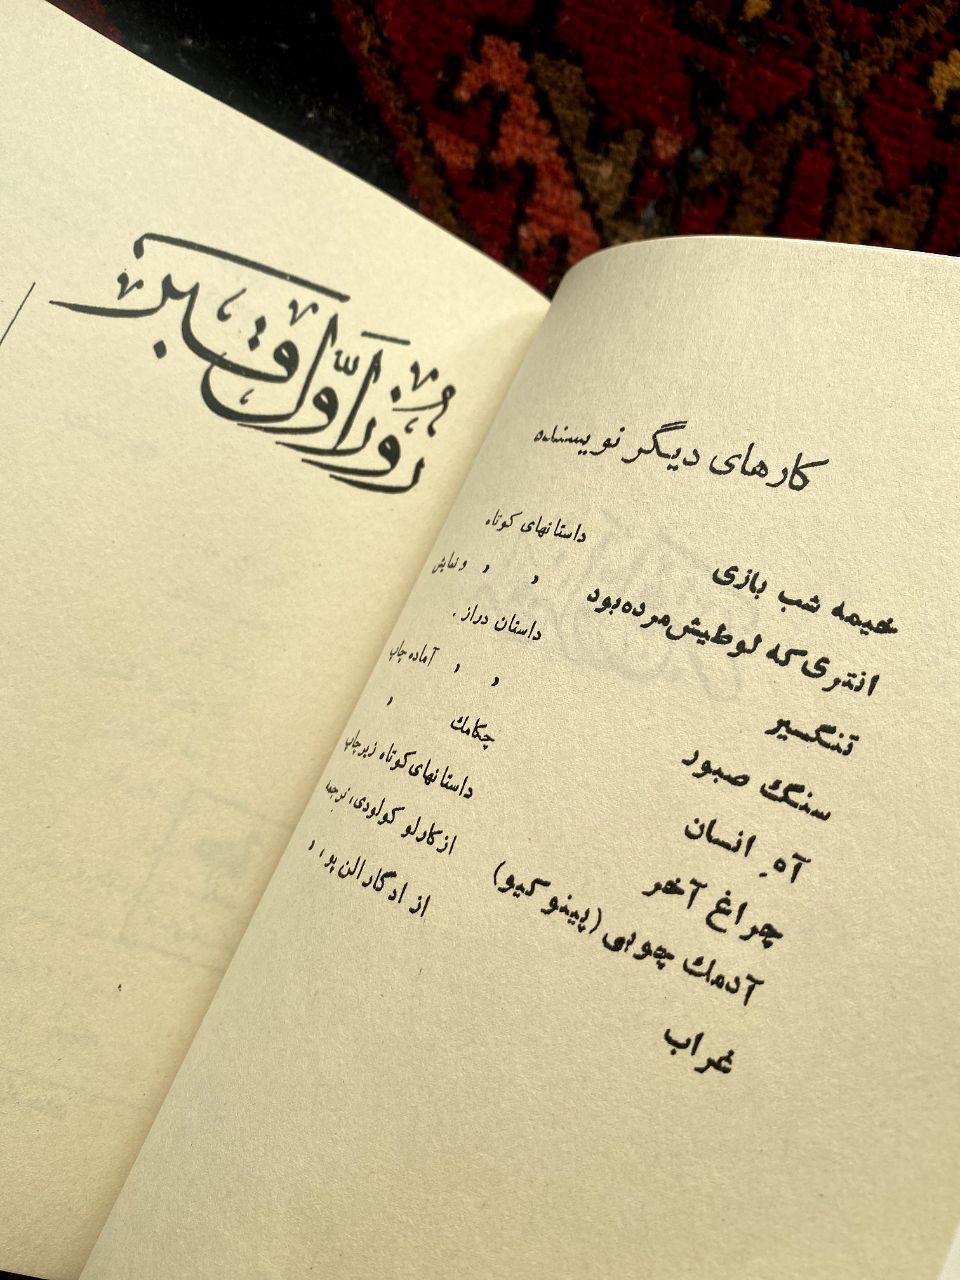 کارهای دیگر نویسنده
خیمه شب بازی داستانهای کوتاه
انتری که لوطیش مرده بود , , و نمایش
تنگسیر داستان دراز .
سنگ صبور , , آماده چاپ
آهِ انسان چکامك ,
چراغ آخر داستانهای کوتاه زیر چاپ
آدمك چوبی (پینوکیو) از کارلو کولودی، ترجمه
غراب از ادگار الن پو، ,
رُوز اَوّل قبر